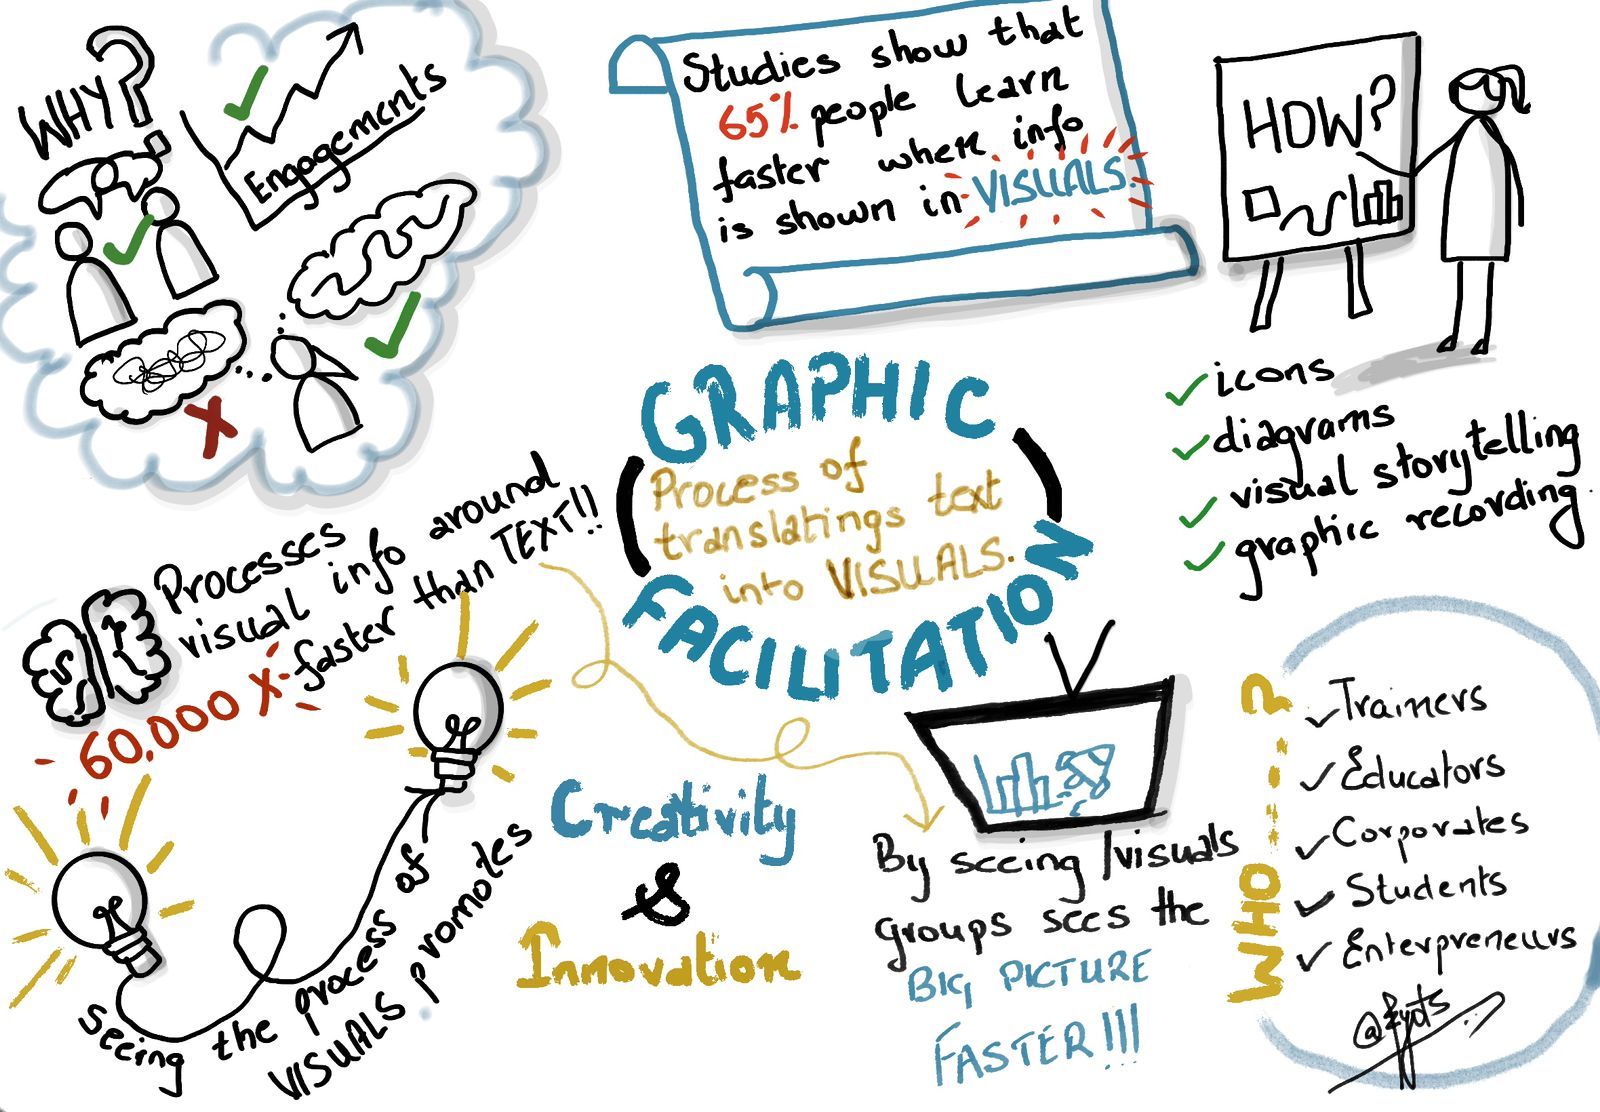 WHY?
Engagements
Studies show that
65% people learn
faster when info
is shown in VISUALS.
HOW?
icons
diagrams
visual storytelling
graphic recording.
GRAPHIC
Process of
translatings text
into VISUALS.
FACILITATION
Processes
visual info around
60,000 X faster than TEXT!!
Seeing the process of
VISUALS promotes
Creativity
&
Innovation
By seeing /visuals
groups sees the
BIG PICTURE
FASTER!!!
WHO---?
Trainers
Educators
Corporates
Students
Enterpreneurs